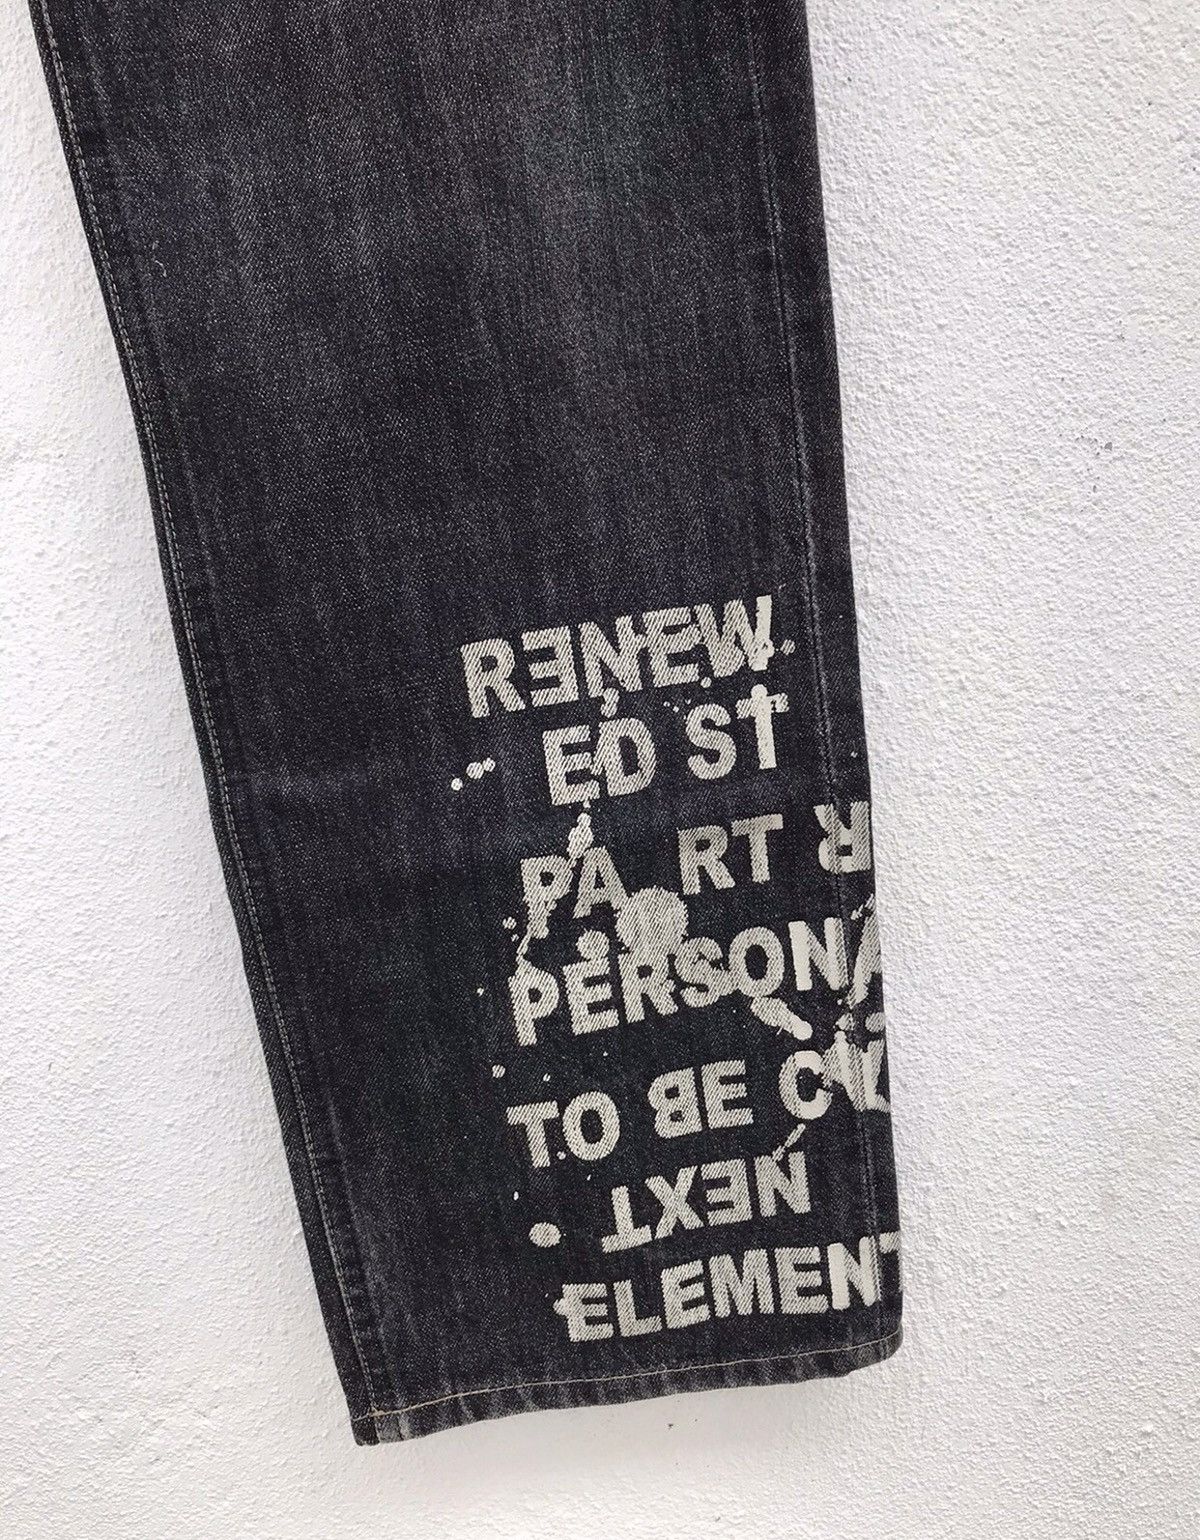 RENEW
ED ST
PA RT R
PERSONA
TO BE C
NEXT
ELEMENT